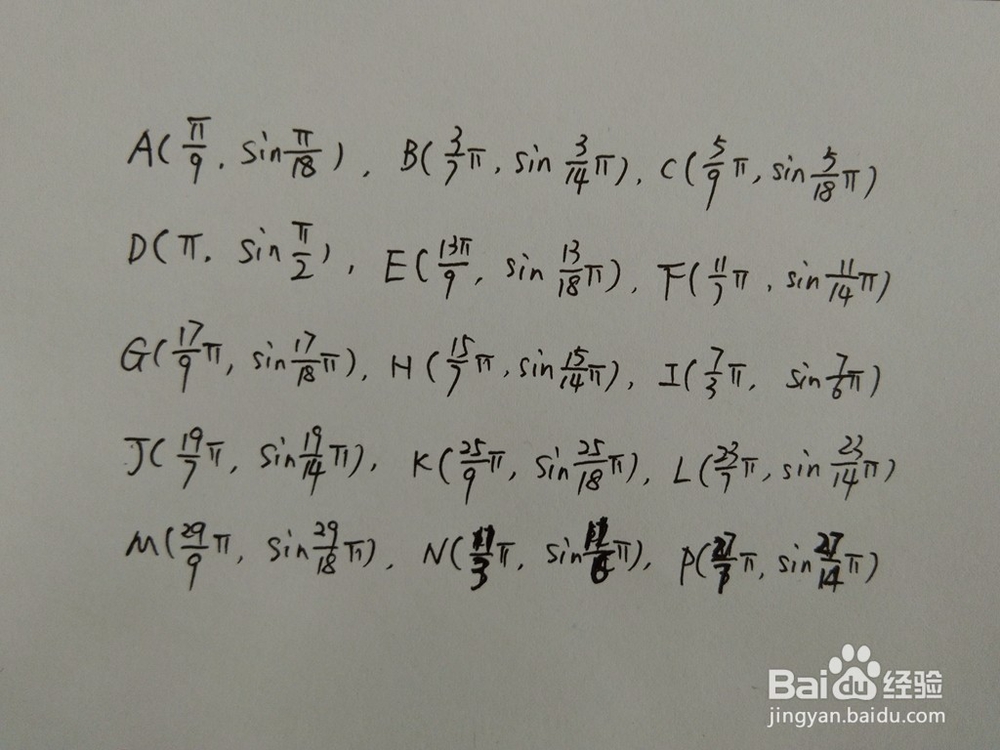 A(π/9, sin π/18), B(3/7 π, sin 3/14 π), C(5/9 π, sin 5/18 π)
D(π, sin π/2), E(13π/9, sin 13/18 π), F(11/7 π, sin 11/14 π)
G(17/9 π, sin 17/18 π), H(15/7 π, sin 15/14 π), I(7/3 π, sin 7/6 π)
J(19/7 π, sin 19/14 π), K(25/9 π, sin 25/18 π), L(23/7 π, sin 23/14 π)
M(29/9 π, sin 29/18 π), N(11/3 π, sin 11/6 π), P(27/7 π, sin 27/14 π)
Baidu 经验
jingyan.baidu.com